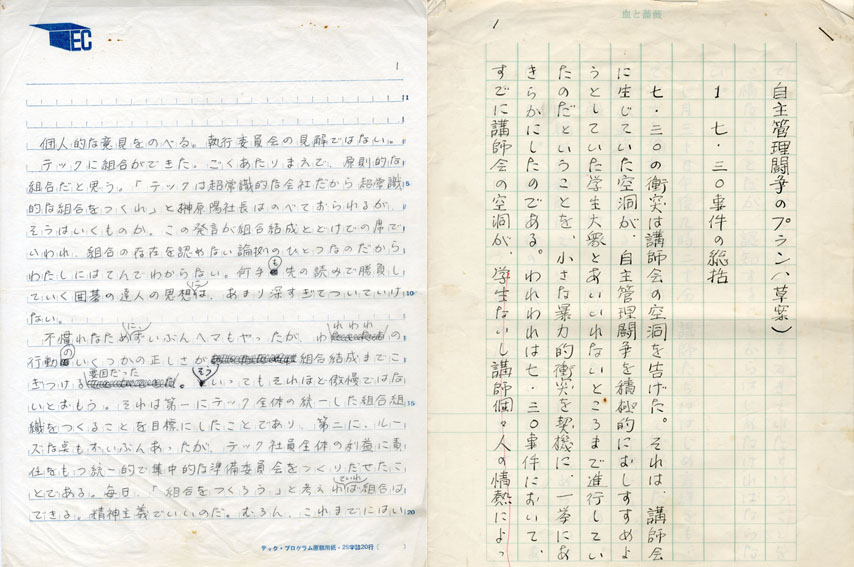 EC
1
個人的な意見をのべる。執行委員会の見解ではない。
テックに組合ができた。ごくあたりまえで、原則的な
組合だと思う。「テックは超常識的な会社だから超常識
的な組合をつくれ」と榊原陽社長はのべておられるが、
そうはいくものか。この発言が組合結成とどけでの席で
いわれ、組合の存在を認めない論拠のひとつなのだから
わたしにはてんでわからない。何手も先の読みで勝負し
ていく囲碁の達人の思想には、あまり深すぎてついていけ
ない。
不慣れなためにずいぶんヘマもやったが、われわれの
行動のいくつかの正しさが組合結成までこ
ぎつける要因だった。そういってもそれほど傲慢ではな
いとおもう。それは第一にテック全体の統一した組合組
織をつくることを目標にしたことであり、第二に、ルー
ズな点もずいぶんあったが、テック社員全体の利益に責
任をもつ統一的で集中的な準備委員会をつくりだせたこ
とである。毎日、「組合をつくろう」と考えていれば組合は
できる。精神主義でいいのだ。むろん、これまでにはい
1
5
10
15
20
テック・プログラム原稿用紙・25字詰20行
血と薔薇
1
自主管理闘争のプラン(草案)
1 七・三〇事件の総括
七・三〇の衝突は講師会の空洞を告げた。それは、講師会
に生じていた空洞が、自主管理闘争を積極的におしすすめよ
うとしていた学生大衆とあいいれないところまで進行してい
たのだということを、小さな暴力的衝突を契機に、一挙にあ
きらかにしたのである。われわれは七・三〇事件において、
すでに講師会の空洞が、学生ないし講師個々人の情熱によっ